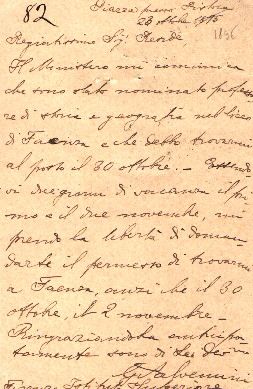 82
Piazza presso Pistoia
28 ottobre 1896
1896
Pregiatissimo Sig. Preside
Il Ministero mi comunica
che sono stato nominato professo
re di storia e geografia nel liceo
di Faenza e che debbo trovarmi
al posto il 30 ottobre. — Essendo
vi due giorni di vacanza il pri
mo e il due novembre, mi
prendo la libertà di doman
darle il permesso di trovarmi
a Faenza, anzi che il 30
ottobre, il 2 novembre.
Ringraziandola anticipa
tamente sono di Lei devmo
G. Salvemini
Superiore